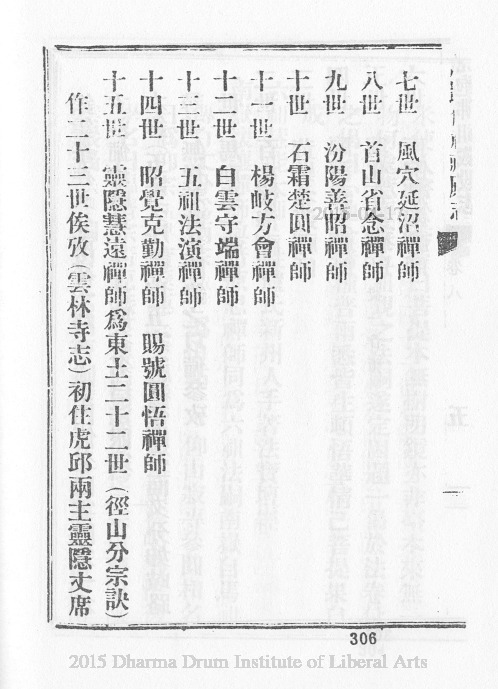 七世 風穴延沼禪師
八世 首山省念禪師
九世 汾陽善昭禪師
十世 石霜楚圓禪師
十一世 楊岐方會禪師
十二世 白雲守端禪師
十三世 五祖法演禪師
十四世 昭覺克勤禪師 賜號圓悟禪師
十五世 靈隱慧遠禪師爲東土二十二世(徑山分宗訣)
作二十三世俟攷(雲林寺志)初住虎邱兩主靈隱丈席
306
2015 Dharma Drum Institute of Liberal Arts